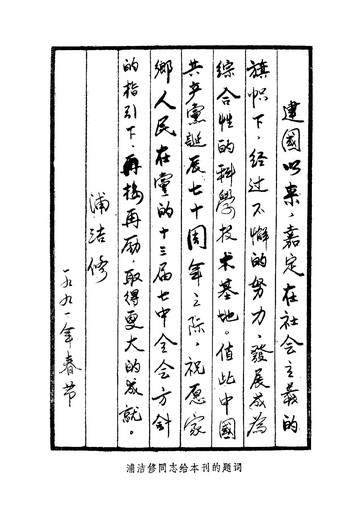 建國以来，嘉定在社会主義的
旗帜下，经过不懈的努力，發展成為
综合性的科學技术基地。值此中國
共产黨誕辰七十周年之际，祝愿家
鄉人民在黨的十三届七中全会方針
的指引下，再接再励，取得更大的成就。
浦洁修
一九九一年春节
浦洁修同志给本刊的题词